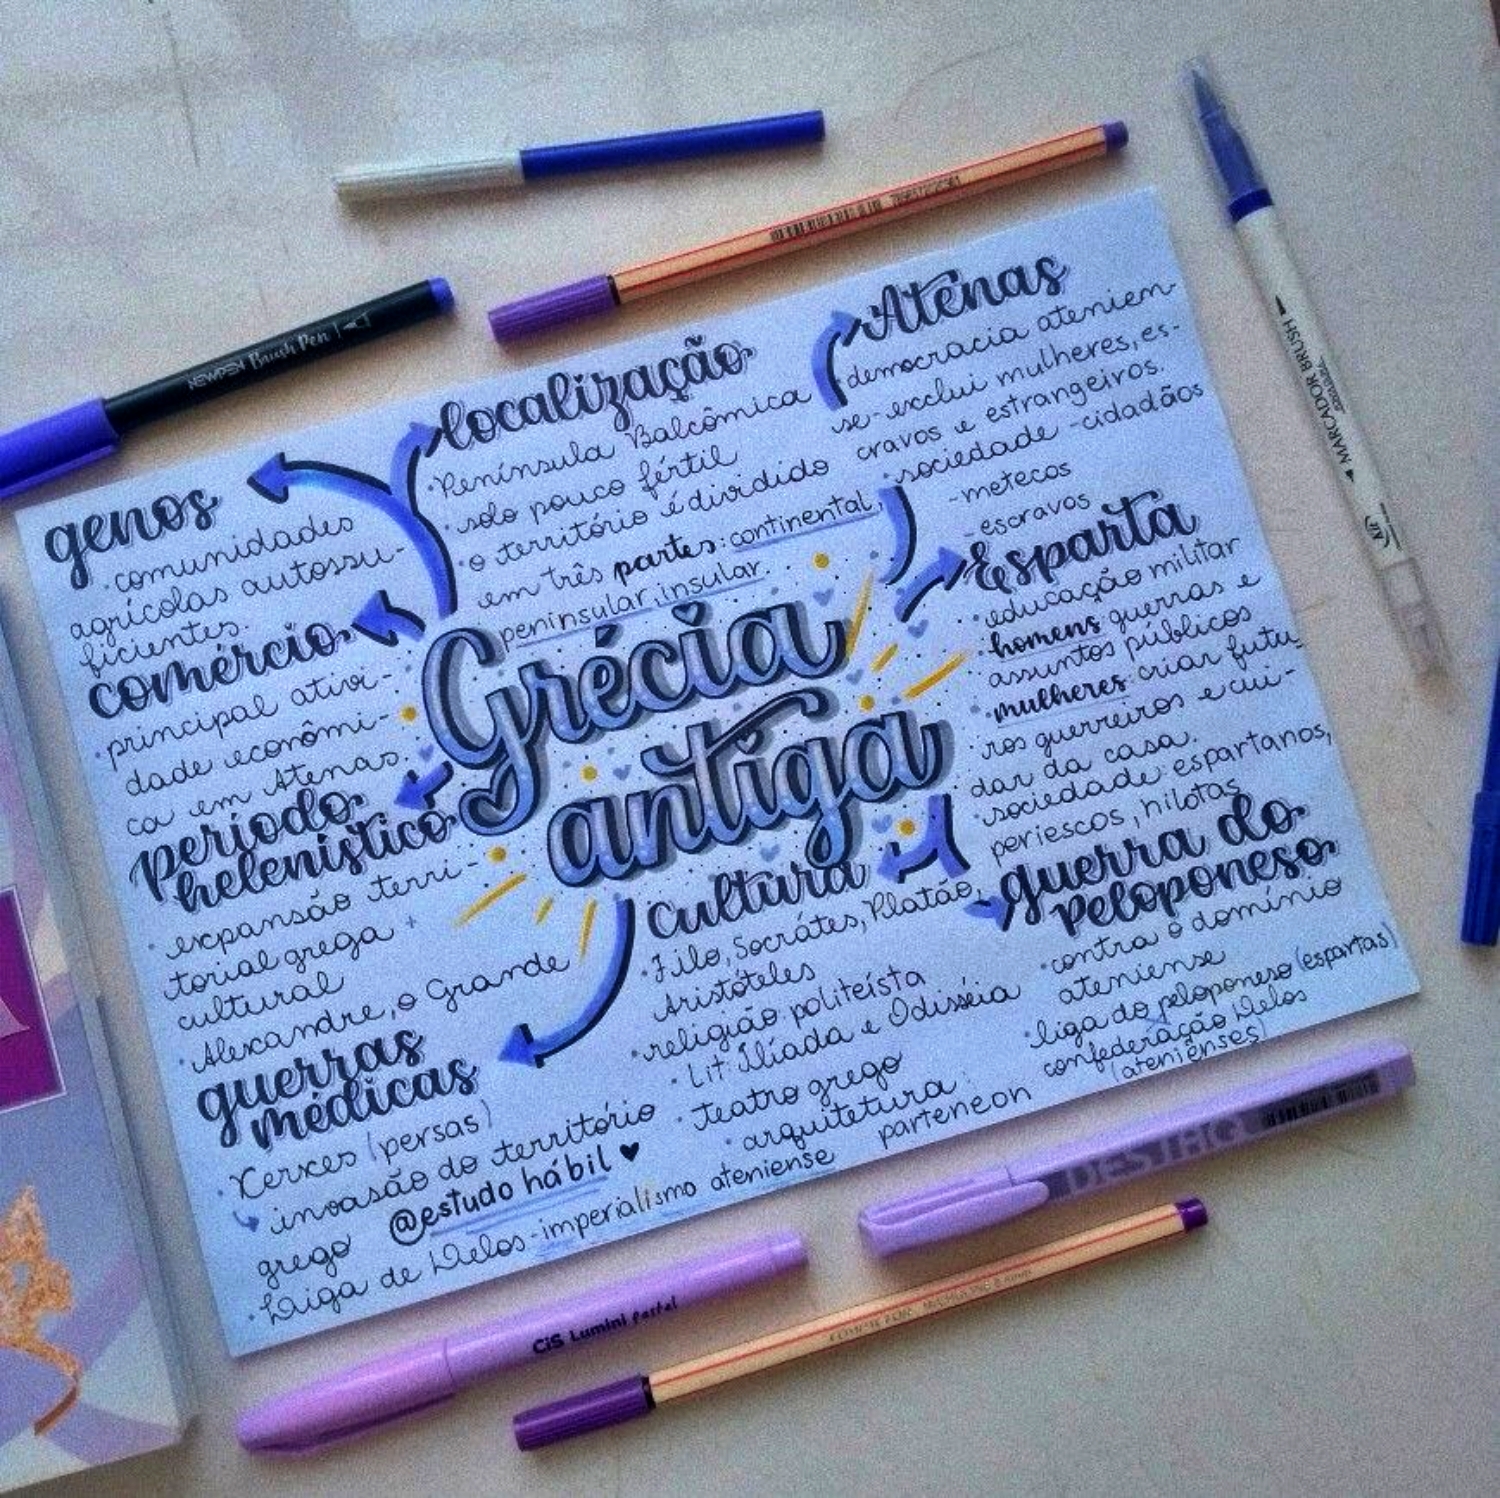 Grécia
antiga
genos
•comunidades
agrícolas autossu-
ficientes.
comércio
•principal ativi-
dade econômi-
ca em Atenas
período
helenístico
•expansão terri-
torial grega +
cultural
•Alexandre, o Grande
guerras
médicas
•Xerxes (persas)
invasão do território
grego
@estudo hábil
•Liga de Delos-imperialismo ateniense
localização
•Península Balcômica
•solo pouco fértil
•o território é dividido
em três partes: continental,
peninsular, insular.
Atenas
•democracia atenien-
se-exclui mulheres, es-
cravos e estrangeiros.
•sociedade -cidadãos
-metecos
-escravos
Esparta
•educação militar
•homens guerras e
assuntos públicos
•mulheres: criar futu-
ros guerreiros e cui-
dar da casa.
•sociedade: espartanos,
periescos, hilotas
guerra do
peloponeso
•contra o domínio
ateniense
•liga do peloponeso (espartas)
confederação Delos
(atenienses)
cultura
•Filo, Socrátes, Platão,
Aristóteles
•religião politeísta
•Lit: Ilíada e Odisséia
•teatro grego
•arquitetura:
parteneon
NEWPEN Brush Pen
MARCADOR BRUSH
CiS Lumini Pastel